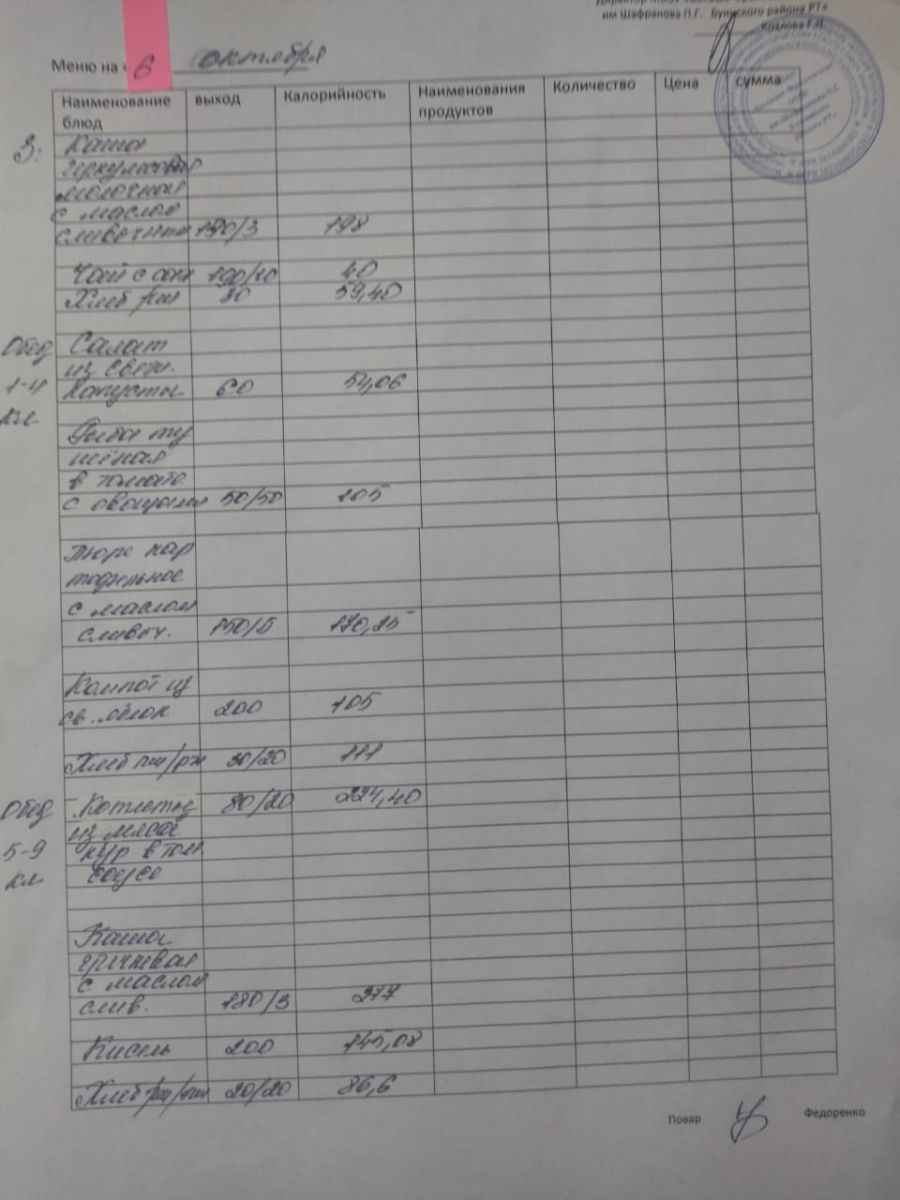 им Шафранова П.Г. Буинского района РТ»
Козлова Г.И.
Меню на 6 октября
Наименование блюд выход Калорийность Наименования продуктов Количество Цена сумма
З: Каша
геркулесовая
молочная
с маслом
сливочным 190/3 198
Чай с сах 190/10 40
Хлеб рж 30 59,40
Обед Салат
из свеж.
1-4 капусты 60 54,06
кл
Рыба ту
шёная
в томате
с овощами 50/50 105
Пюре кар
тофельное
с маслом
сливоч. 150/5 170,25
Компот из
св. яблок 200 105
Хлеб пш/рж 30/20 111
Обед Котлеты 80/20 221,40
из мяса
5-9 кур в том.
кл соусе
Каша
гречневая
с маслом
слив. 180/3 277
Кисель 200 145,08
Хлеб рж/пш 20/20 86,6
Повар Федоренко